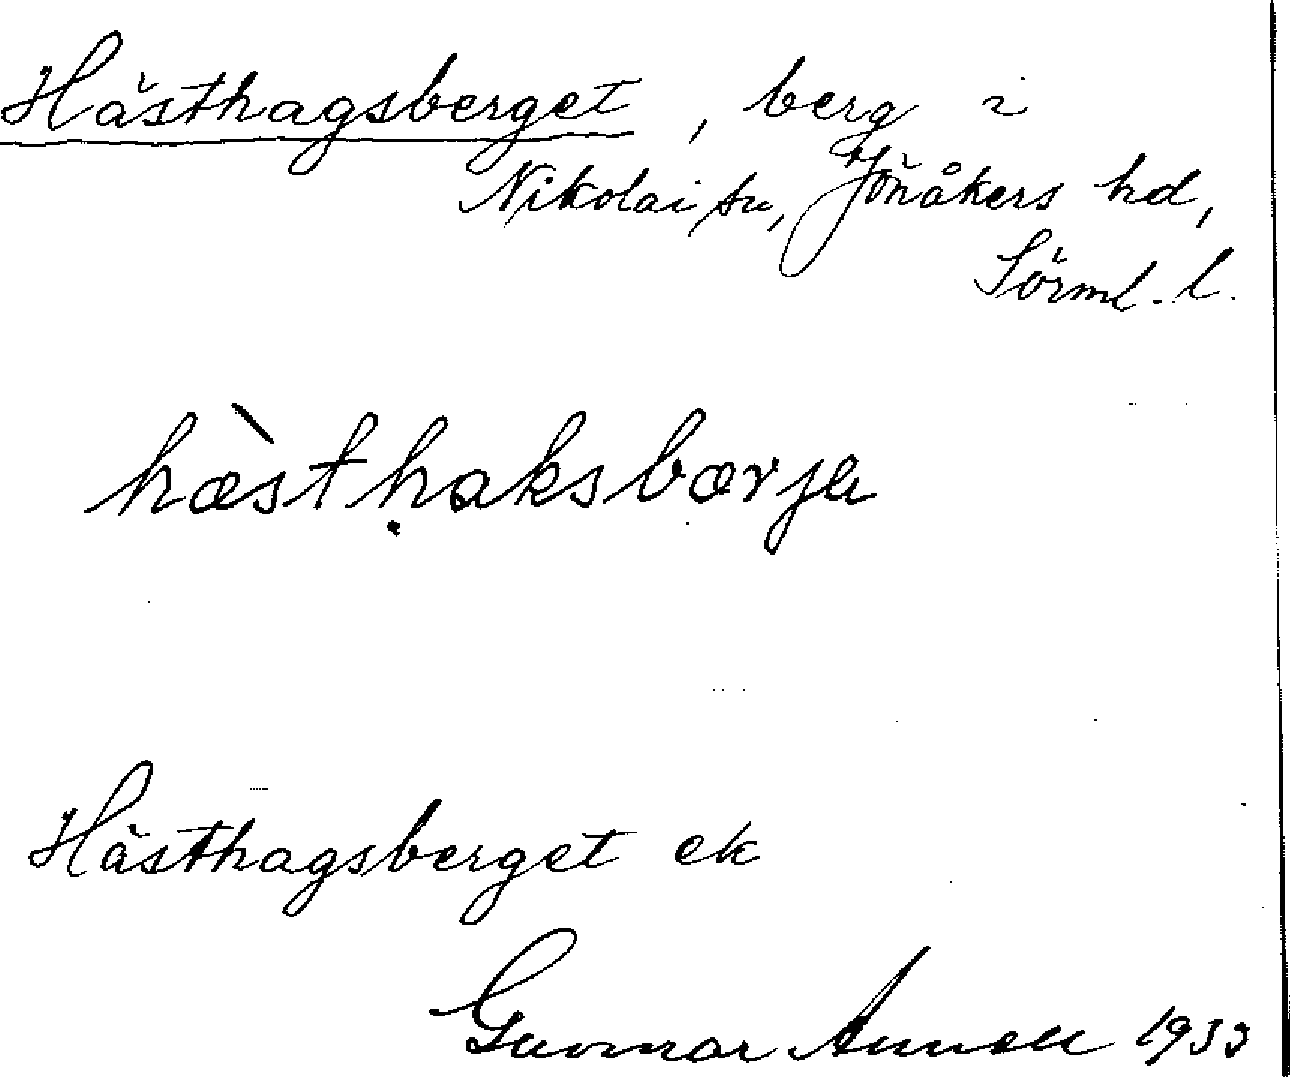 Hästhagsberget, berg i
Nikolai sn, Jönåkers hd,
Sörml. l.
hæ̀stḥaksbærja
Hästhagsberget ek
Gunnar Annell 1933